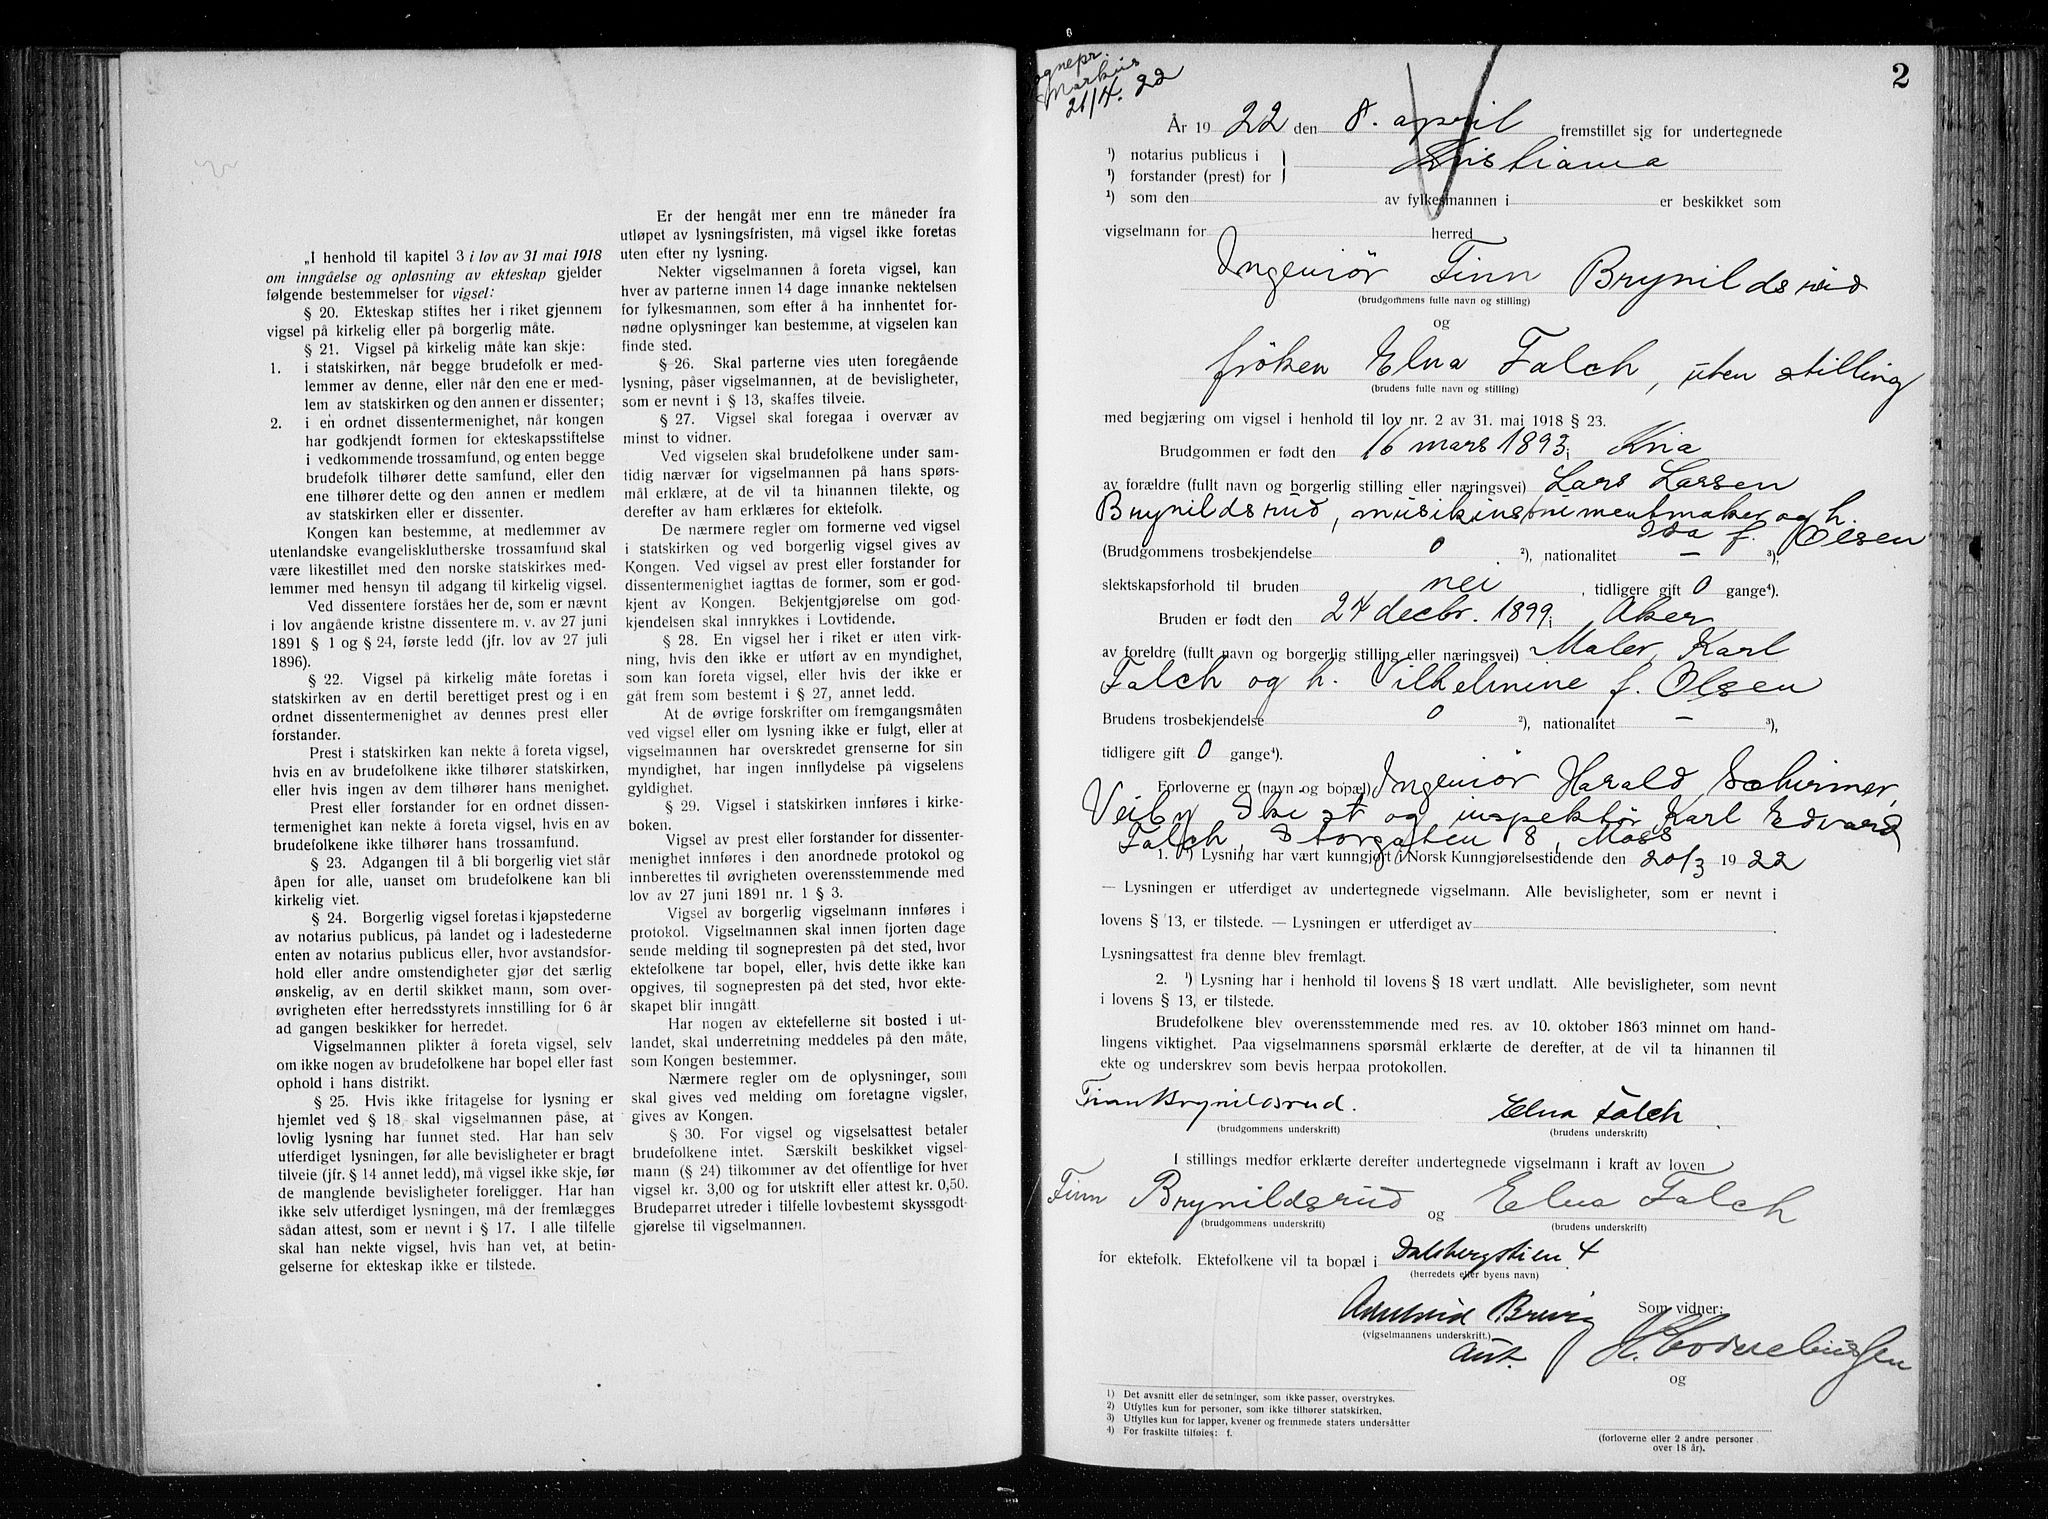 „I henhold til kapitel 3 i lov av 31 mai 1918
om inngåelse og opløsning av ekteskap gjelder
følgende bestemmelser for vigsel:
§ 20. Ekteskap stiftes her i riket gjennem
vigsel på kirkelig eller på borgerlig måte.
§ 21. Vigsel på kirkelig måte kan skje:
1. i statskirken, når begge brudefolk er med-
lemmer av denne, eller når den ene er med-
lem av statskirken og den annen er dissenter;
2. i en ordnet dissentermenighet, når kongen
har godkjendt formen for ekteskapsstiftelse
i vedkommende trossamfund, og enten begge
brudefolk tilhører dette samfund, eller den
ene tilhører dette og den annen er medlem
av statskirken eller er dissenter.
Kongen kan bestemme, at medlemmer av
utenlandske evangelisklutherske trossamfund skal
være likestillet med den norske statskirkes med-
lemmer med hensyn til adgang til kirkelig vigsel.
Ved dissentere forståes her de, som er nævnt
i lov angående kristne dissentere m. v. av 27 juni
1891 § 1 og § 24, første ledd (jfr. lov av 27 juli
1896).
§ 22. Vigsel på kirkelig måte foretas i
statskirken av en dertil berettiget prest og i en
ordnet dissentermenighet av dennes prest eller
forstander.
Prest i statskirken kan nekte å foreta vigsel,
hvis en av brudefolkene ikke tilhører statskirken,
eller hvis ingen av dem tilhører hans menighet.
Prest eller forstander for en ordnet dissen-
termenighet kan nekte å foreta vigsel, hvis en av
brudefolkene ikke tilhører hans trossamfund.
§ 23. Adgangen til å bli borgerlig viet står
åpen for alle, uanset om brudefolkene kan bli
kirkelig viet.
§ 24. Borgerlig vigsel foretas i kjøpstederne
av notarius publicus, på landet og i ladestederne
enten av notarius publicus eller, hvor avstandsfor-
hold eller andre omstendigheter gjør det særlig
ønskelig, av en dertil skikket mann, som over-
øvrigheten efter herredsstyrets innstilling for 6 år
ad gangen beskikker for herredet.
Vigselmannen plikter å foreta vigsel, selv
om ikke nogen av brudefolkene har bopel eller fast
ophold i hans distrikt.
§ 25. Hvis ikke fritagelse for lysning er
hjemlet ved § 18 skal vigselmannen påse, at
lovlig lysning har funnet sted. Har han selv
utferdiget lysningen, før alle bevisligheter er bragt
tilveie (jfr. § 14 annet ledd), må vigsel ikke skje, før
de manglende bevisligheter foreligger. Har han
ikke selv utferdiget lysningen, må der fremlægges
sådan attest, som er nevnt i § 17. I alle tilfelle
skal han nekte vigsel, hvis han vet, at betin-
gelserne for ekteskap ikke er tilstede.
Er der hengåt mer enn tre måneder fra
utløpet av lysningsfristen, må vigsel ikke foretas
uten efter ny lysning.
Nekter vigselmannen å foreta vigsel, kan
hver av parterne innen 14 dage innanke nektelsen
for fylkesmannen, som efter å ha innhentet for-
nødne oplysninger kan bestemme, at vigselen kan
finde sted.
§ 26. Skal parterne vies uten foregående
lysning, påser vigselmannen, at de bevisligheter,
som er nevnt i § 13, skaffes tilveie.
§ 27. Vigsel skal foregaa i overvær av
minst to vidner.
Ved vigselen skal brudefolkene under sam-
tidig nærvær for vigselmannen på hans spørs-
mål erklære, at de vil ta hinannen tilekte, og
derefter av ham erklæres for ektefolk.
De nærmere regler om formerne ved vigsel
i statskirken og ved borgerlig vigsel gives av
Kongen. Ved vigsel av prest eller forstander for
dissentermenighet iagttas de former, som er god-
kjent av Kongen. Bekjentgjørelse om god-
kjendelsen skal innrykkes i Lovtidende.
§ 28. En vigsel her i riket er uten virk-
ning, hvis den ikke er utført av en myndighet,
som kan foreta vigsel, eller hvis der ikke er
gåt frem som bestemt i § 27, annet ledd.
At de øvrige forskrifter om fremgangsmåten
ved vigsel eller om lysning ikke er fulgt, eller at
vigselmannen har overskredet grenserne for sin
myndighet, har ingen innflydelse på vigselens
gyldighet.
§ 29. Vigsel i statskirken innføres i kirke-
boken.
Vigsel av prest eller forstander for dissenter-
menighet innføres i den anordnede protokol og
innberettes til øvrigheten overensstemmende med
lov av 27 juni 1891 nr. 1 § 3.
Vigsel av borgerlig vigselmann innføres i
protokol. Vigselmannen skal innen fjorten dage
sende melding til sognepresten på det sted, hvor
ektefolkene tar bopel, eller, hvis dette ikke kan
opgives, til sognepresten på det sted, hvor ekte-
skapet blir inngått.
Har nogen av ektefellerne sit bosted i ut-
landet, skal underretning meddeles på den måte,
som Kongen bestemmer.
Nærmere regler om de oplysninger, som
skal gives ved melding om foretagne vigsler,
gives av Kongen.
§ 30. For vigsel og vigselsattest betaler
brudefolkene intet. Særskilt beskikket vigsel-
mann (§ 24) tilkommer av det offentlige for hver
vigsel kr. 3,00 og for utskrift eller attest kr. 0,50.
Brudeparret utreder i tilfelle lovbestemt skyssgodt-
gjørelse til vigselmannen.
ognepr.
Markus
21/4. 22
2
År 1922 den 8. april fremstillet sig for undertegnede
1) notarius publicus i } Kristiania
1) forstander (prest) for
1) som den av fylkesmannen i er beskikket som
vigselmann for herred
Ingeniör Finn Brynildsrud
(brudgommens fulle navn og stilling)
og
fröken Elna Falch, uten stilling
(brudens fulle navn og stilling)
med begjæring om vigsel i henhold til lov nr. 2 av 31. mai 1918 § 23.
Brudgommen er født den 16 mars 1893 i Kria
av forældre (fullt navn og borgerlig stilling eller næringsvei) Lars Larsen
Brynildsrud, musikinstrumentmaker og h.
Ida f. Olsen
(Brudgommens trosbekjendelse 0 2), nationalitet – 3),
slektskapsforhold til bruden nei, tidligere gift 0 gange4).
Bruden er født den 24 decbr. 1899 i Aker
av foreldre (fullt navn og borgerlig stilling eller næringsvei) Maler Karl
Falch og h. Vilhelmine f. Olsen
Brudens trosbekjendelse 0 2), nationalitet – 3),
tidligere gift 0 gange4).
Forloverne er (navn og bopæl) Ingeniör Harald Schirmer,
Veiby Ski st og inspektör Karl Edvard
Falch, Storgaten 8, Moss
1. 1) Lysning har vært kunngjort i Norsk Kunngjørelsestidende den 20/3 1922
— Lysningen er utferdiget av undertegnede vigselmann. Alle bevisligheter, som er nevnt i
lovens § 13, er tilstede. — Lysningen er utferdiget av
Lysningsattest fra denne blev fremlagt.
2. 1) Lysning har i henhold til lovens § 18 vært undlatt. Alle bevisligheter, som nevnt
i lovens § 13, er tilstede.
Brudefolkene blev overensstemmende med res. av 10. oktober 1863 minnet om hand-
lingens viktighet. Paa vigselmannens spørsmål erklærte de derefter, at de vil ta hinannen til
ekte og underskrev som bevis herpaa protokollen.
Finn Brynildsrud. Elna Falch
(brudgommens underskrift) (brudens underskrift)
I stillings medfør erklærte derefter undertegnede vigselmann i kraft av loven
Finn Brynildsrud og Elna Falch
(brudgommens underskrift) (brudens underskrift)
for ektefolk. Ektefolkene vil ta bopæl i Dalsbergstien 4
(herredets eller byens navn)
Brevig Som vidner:
(vigselmannens underskrift.)
Aut.
og
1) Det avsnitt eller de setninger, som ikke passer, overstrykes.
2) Utfylles kun for personer, som ikke tilhører statskirken.
3) Utfylles kun for lapper, kvener og fremmede staters undersåtter
4) For fraskilte tilføies: f.
(forloverne eller 2 andre personer
over 18 år).